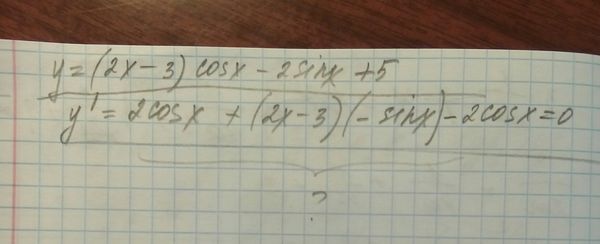 y = (2x - 3) cosx - 2sinx + 5
y' = 2cosx + (2x - 3)(- sinx) - 2cosx = 0
?